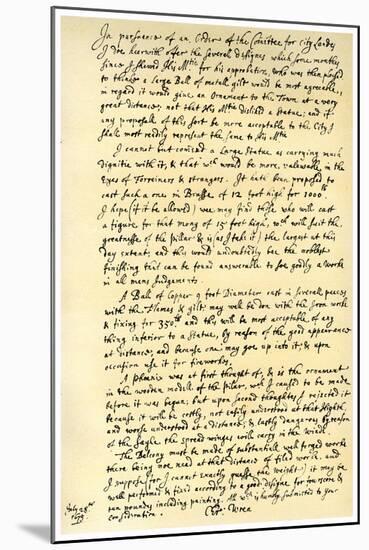 In pursuance of an Order of the Comittee for City Landes
I doe heerwith offer the severall designes which some monthes
since I shewed His Matie for his approbation, who was then pleased
to thinke a large Ball of metall gilt would be most agreeable,
in regard it would give an Ornament to the Town at a very
great distance; not that His Matie disliked a Statue; and if
any proposall of this sort be more acceptable to the City I
shall most readily represent the same to His Matie
I cannot but comend a Large Statue as carrying much
dignitie with it, & that wch would be more valewable in the
Eyes of Forreiners & strangers. It hath been proposed to
cast such a one in Brasse of 12 foot high for 1000lb
I hope (if it be allowed) wee may find those who will cast
a figure for that mony of 15 foot high, wch will suit the
greatnesse of the pillar & is (as I take it) the largest at this
day extant; and this would undoubtedly bee the noblest
finishing that can be found answerable to soe goodly a worke
in all mens Judgements.
A Ball of Copper 9 foot Diameter cast in severall peeces
with the Flames & gilt may well be don with the Iron worke
& fixing for 350lb and this will be most acceptable of any
thing inferior to a Statue, by reason of the good appearance
at distance, and because one may goe up into it; & upon
occasion use it for fireworkes.
A Phoenix was at first thought of, & is the ornament
in the wooden modell of the pillar, wch I caused to be made
before it was begun; but upon second thoughtes I rejected it
because it will be costly, not easily understood at that Highth,
and worse understood at a distance; & lastly dangerous by reason
of the sayle the spread winges will carry in the winde.
The Balcony must be made of substantiall well forged worke
there being noe need at that distance of filed worke, and
I suppose (for I cannot exactly guesse the weight) it may be
well performed & fixed according to a good designe for
pounds including painting. All wch is humbly submitted to your
consideration.
July 28th
Chr. Wren